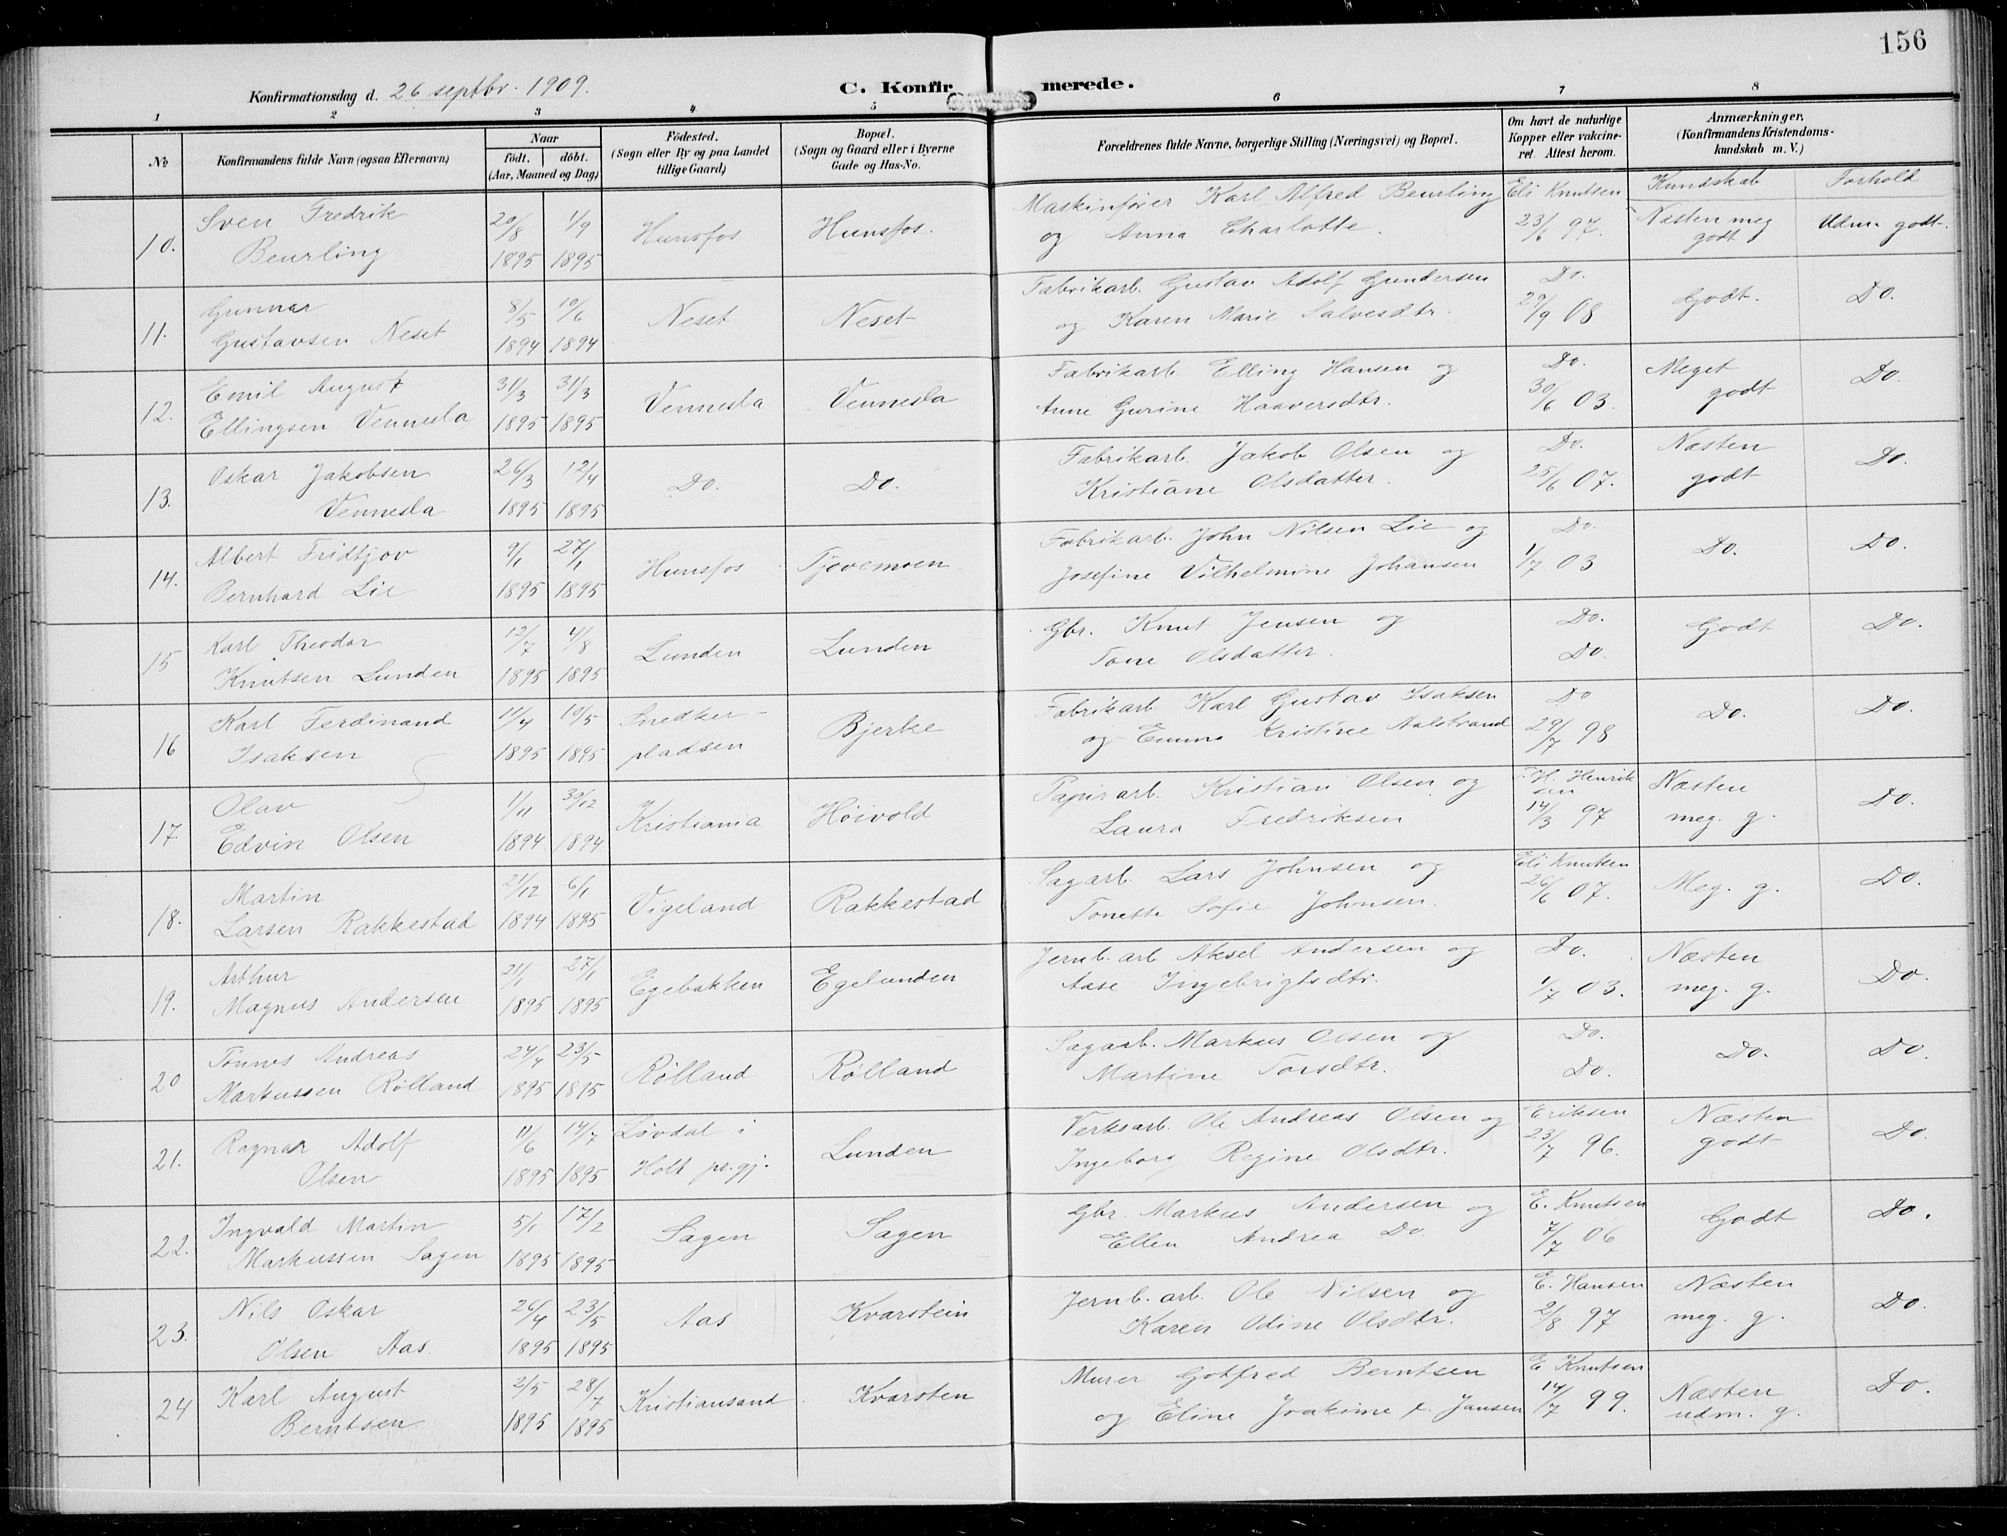 156
Konfirmationsdag d. 26 septbr. 1909.
C. Konfirmerede.
1 2 3 4 5 6 7 8
No
Konfirmandens fulde Navn (ogsaa Efternavn)
Naar
født. døbt.
(Aar, Maaned og Dag)
Födested.
(Sogn eller By og paa Landet
tillige Gaard)
Bopæl.
(Sogn og Gaard eller i Byerne
Gade og Hus-No.
Forældrenes fulde Navne, borgerlige Stilling (Næringsvei) og Bopæl.
Om havt de naturlige
Kopper eller vakcine-
ret. Attest herom.
Anmærkninger.
(Konfirmandens Kristendoms-
kundskab m. V.)
Kundskab Forhold
10. Sven Fredrik 20/8 1/9 Hunsfos Hunsfos. Maskinfører Karl Alfred Beurling Eli Knutsen Næsten meg Udm. godt.
Beurling 1895 1895 og Anna Charlotte. 23/6 97. godt
11. Gunnar 8/5 10/6 Neset Neset Fabrikarb. Gustav Adolf Gundersen Do. Godt. Do.
Gustavsen Neset 1894 1894 og Karen Marie Salvesdtr. 29/9 08
12. Emil August 31/3 31/3 Vennesla Vennesla Fabrikarb. Elling Hansen og Do. Meget Do.
Ellingsen Vennesla 1895 1895 Anne Gurine Haaversdtr. 30/6 03. godt
13. Oskar Jakobsen 26/3 12/4 Do. Do. Fabrikarb. Jakob Olsen og Do. Næsten Do.
Vennesla 1895 1895 Kristiane Olsdatter. 25/6 07. godt
14. Albert Fridtjov 9/1 27/1 Hunsfos Tjovemoen Fabrikarb. John Nilsen Lie og Do. Do. Do.
Bernhard Lie 1895 1895 Josefine Vilhelmine Johansen 1/7 03
15 Karl Theodor 12/7 4/8 Lunden Lunden Gbr. Knut Jensen og Do. Godt Do.
Knutsen Lunden 1895 1895 Tone Olsdatter. Do.
16 Karl Ferdinand 11/4 10/5 Snedker- Bjerke Fabrikarb. Karl Gustav Isaksen Do Do. Do.
Isaksen 1895 1895 pladsen og Emma Kristine Aalstrand 29/7 98
17. Olav 1/11 30/12 Kristiania Høivold Papirarb. Kristian Olsen og H. Henrik Næsten Do.
Edvin Olsen 1894 1894 Laura Fredriksen sen 14/3 97 meg. g.
18. Martin 21/12 6/1 Vigeland Rakkestad Sagarb. Lars Johnsen og Eli Knutsen Meg. g. Do.
Larsen Rakkestad 1894 1895 Tonette Sofie Johnsen. 26/6 07.
19. Arthur 21/1 27/1 Egebakken Egelunden Jernb. arb. Aksel Andersen og Do. Næsten Do.
Magnus Andersen 1895 1895 Aase Ingebrigtsdtr. 1/7 03. meg. g.
20 Tønnes Andreas 24/4 23/5 Rølland Rølland Sagarb. Markus Olsen og Do. Do. Do.
Markussen Rølland 1895 1895 Martine Torsdtr. Do.
21. Ragnar Adolf 11/6 14/7 Løvdal i Lunden Verksarb. Ole Andreas Olsen og Eriksen Næsten Do.
Olsen 1895 1895 Holt pr.gj. Ingeborg Regine Olsdtr. 23/7 96. godt
22. Ingvald Martin 5/1 17/2 Sagen Sagen Gbr. Markus Andersen og E. Knutsen Godt Do.
Markussen Sagen 1895 1895 Ellen Andrea Do 7/7 06
23. Nils Oskar 26/4 23/5 Aas Kvarstein Jernb. arb. Ole Nilsen og E. Hansen Næsten Do.
Olsen Aas. 1895 1895 Karen Odine Olsdtr. 2/8 97 meg. g.
24 Karl August 2/5 28/7 Kristiansand Kvarsten Murer Gotfred Berntsen E Knutsen Næsten Do.
Berntsen 1895 1895 og Eline Joakime f. Jansen 14/7 99. udm. g.